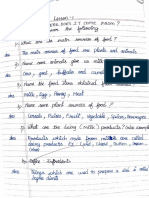 Lesson-1
WHERE DOES IT COME FROM?
Answer the following
1) What are the main sources of food?
Ans The main sources of food are plants and animals
2) Name some animals give us milk?
Ans Cow, goat, buffalo and camel
3) Name the food items obtained from animals?
Ans Milk, Egg, Honey, Meat
4) Name some plant sources of food?
Ans Cereals, Pulses, Fruit, Vegetable, Spices, Beverages
5) What are the dairy (milk) products?
Ans Products which made from milk are called
dairy products. Ex: Curd, Lassi, Butter,
Cheese, etc.
6) Define Ingredients
Ans Things which are used to prepare a dish is called
ingredients